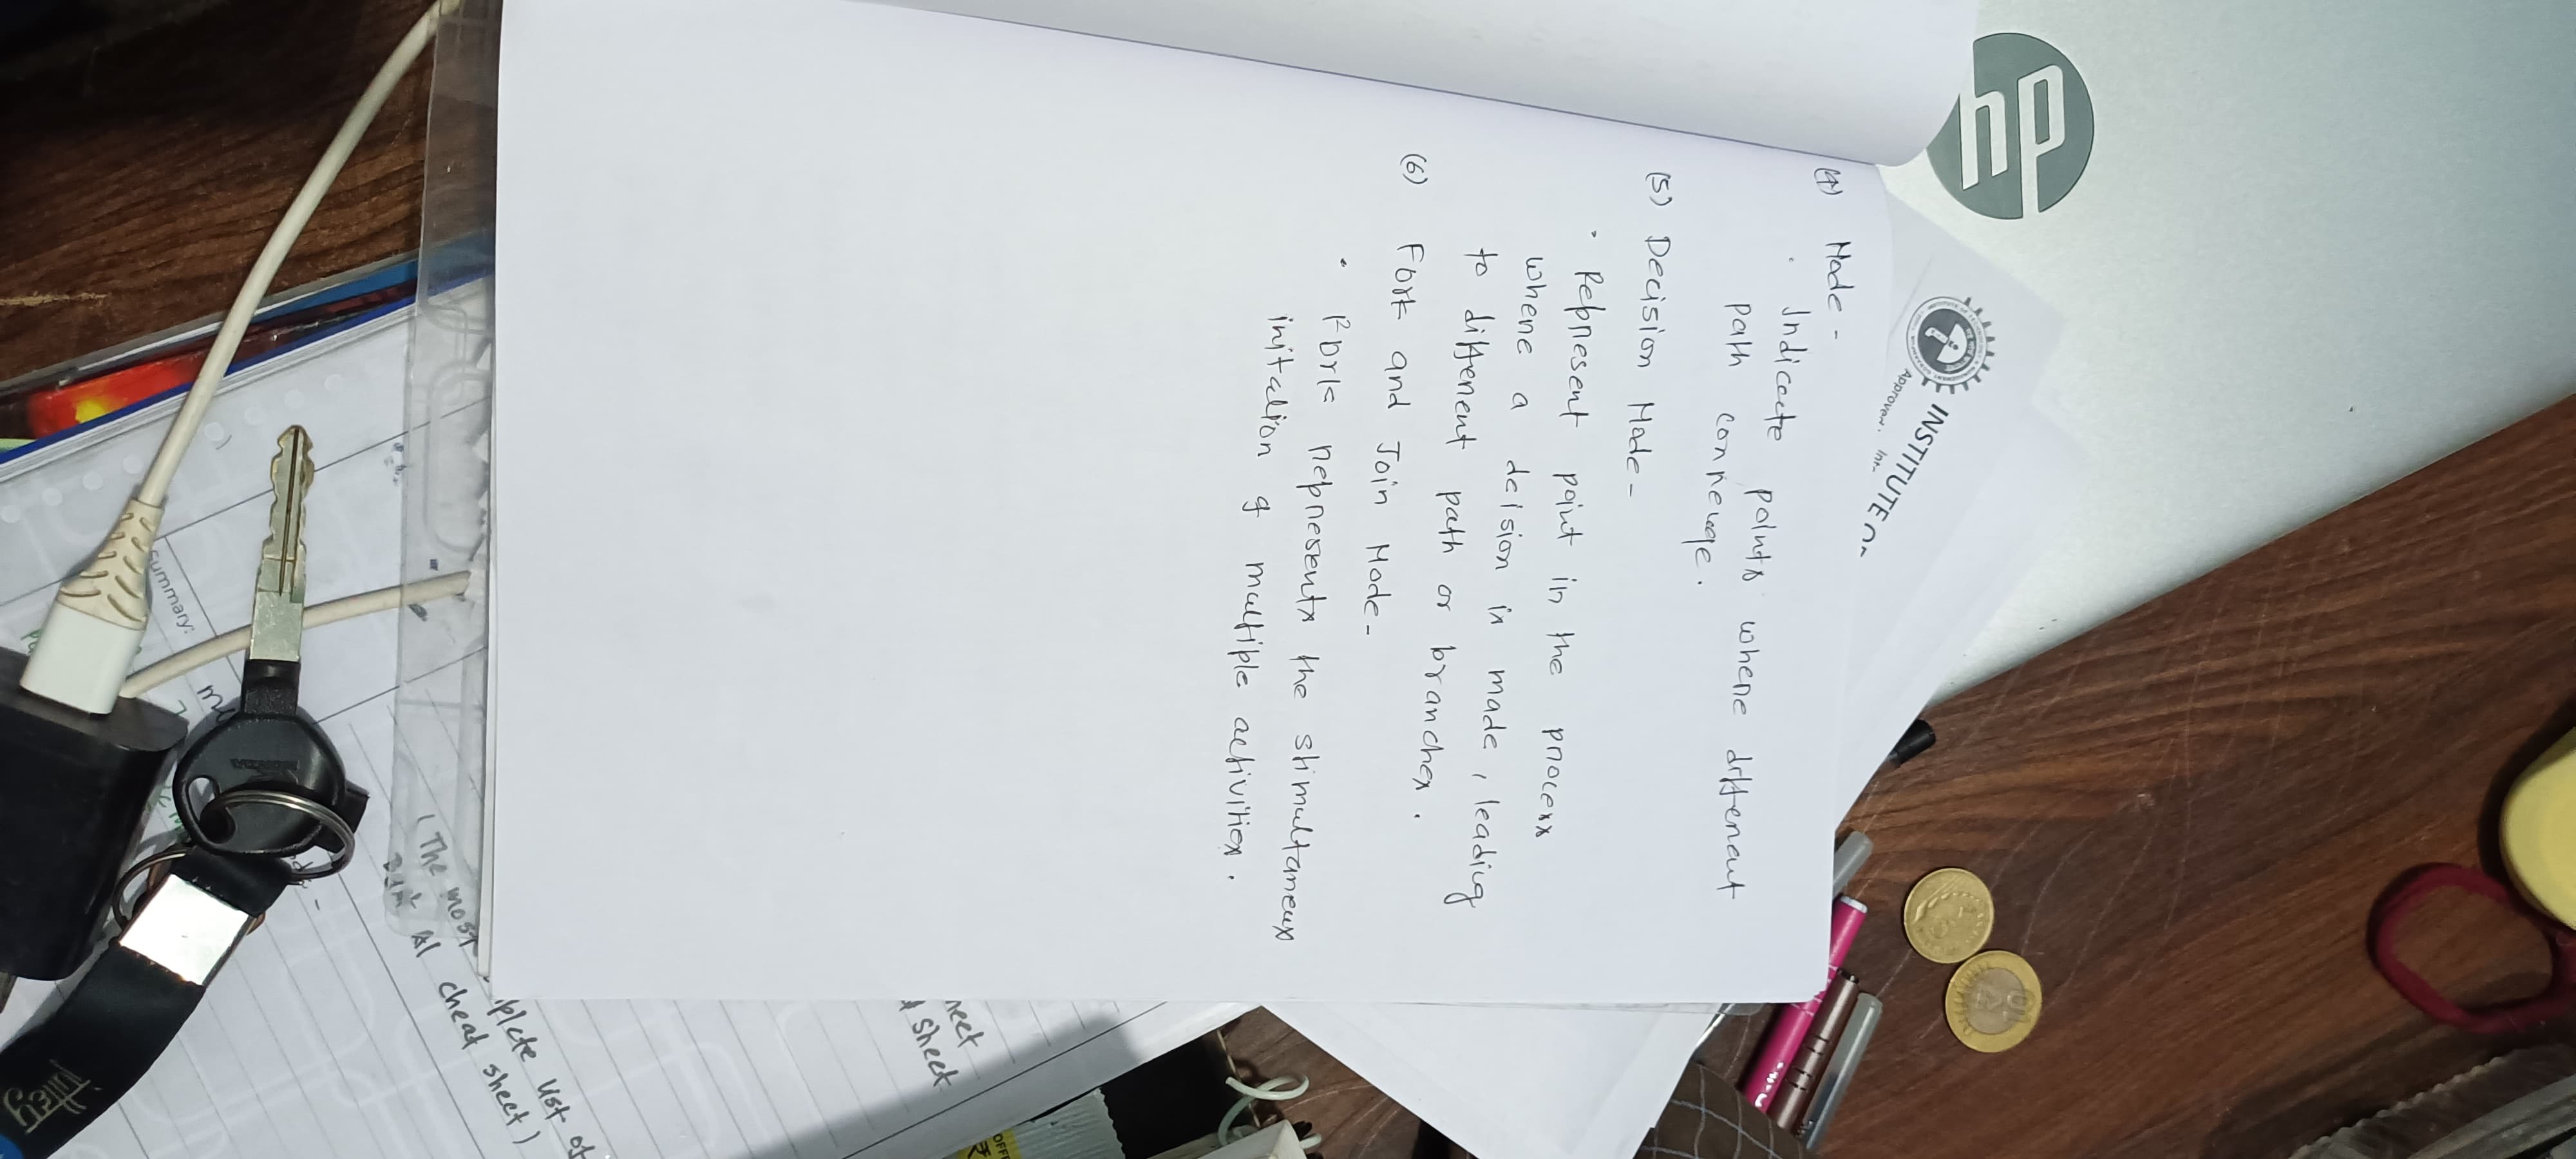 (4) Node -
. Indicate points where different
path converge.
(5) Decision Node -
. Represent point in the process
where a decision is made, leading
to different path or branches.
(6) Fork and Join Node -
. Fork represents the shimultaneus
initation of multiple activities.
INSTITUTE
hp
summary:
(The most
cheat sheet)
plete list of
sheet
OFFE